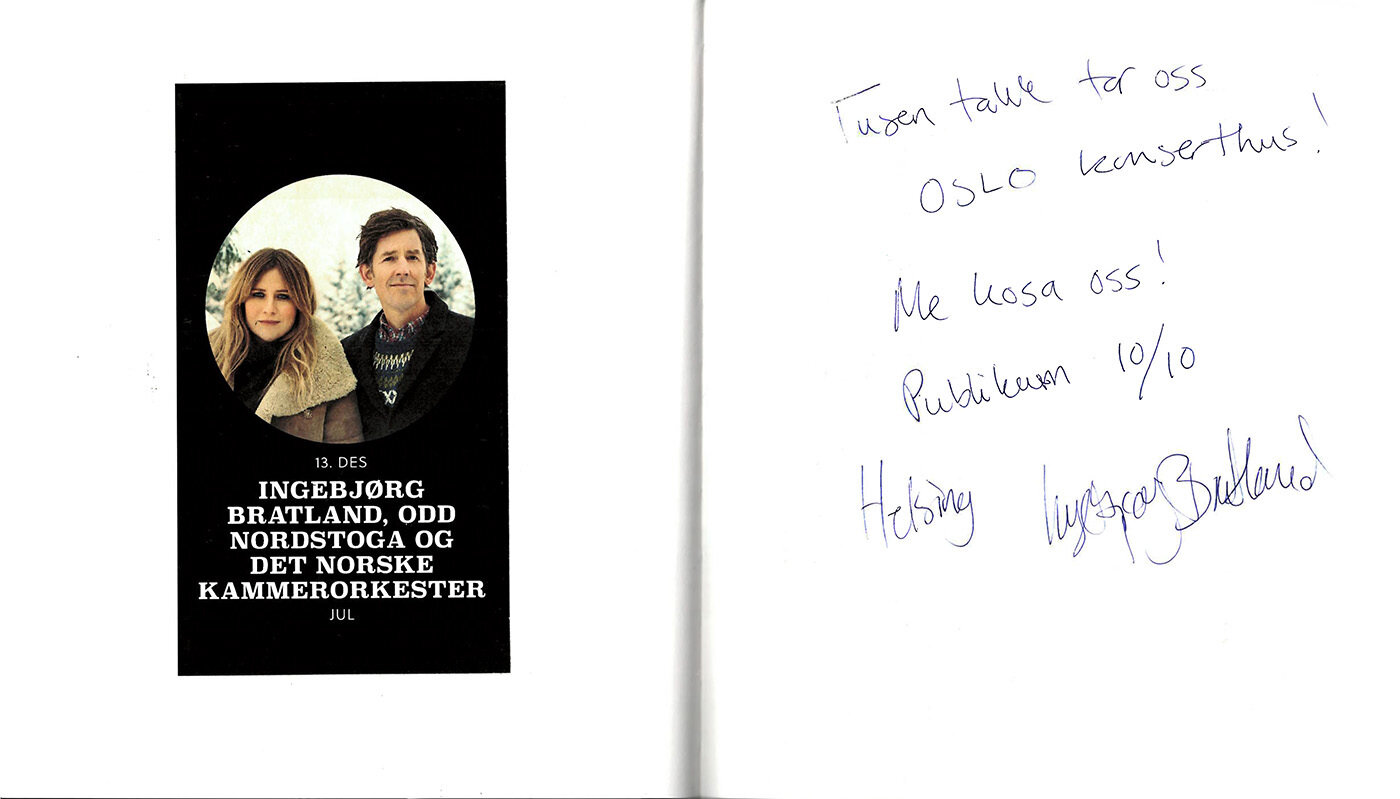 13. DES
INGEBJØRG
BRATLAND, ODD
NORDSTOGA OG
DET NORSKE
KAMMERORKESTER
JUL
Tusen takk for oss
OSLO konserthus!
Me kosa oss!
Publikum 10/10
Helsing Ingebjørg Bratland